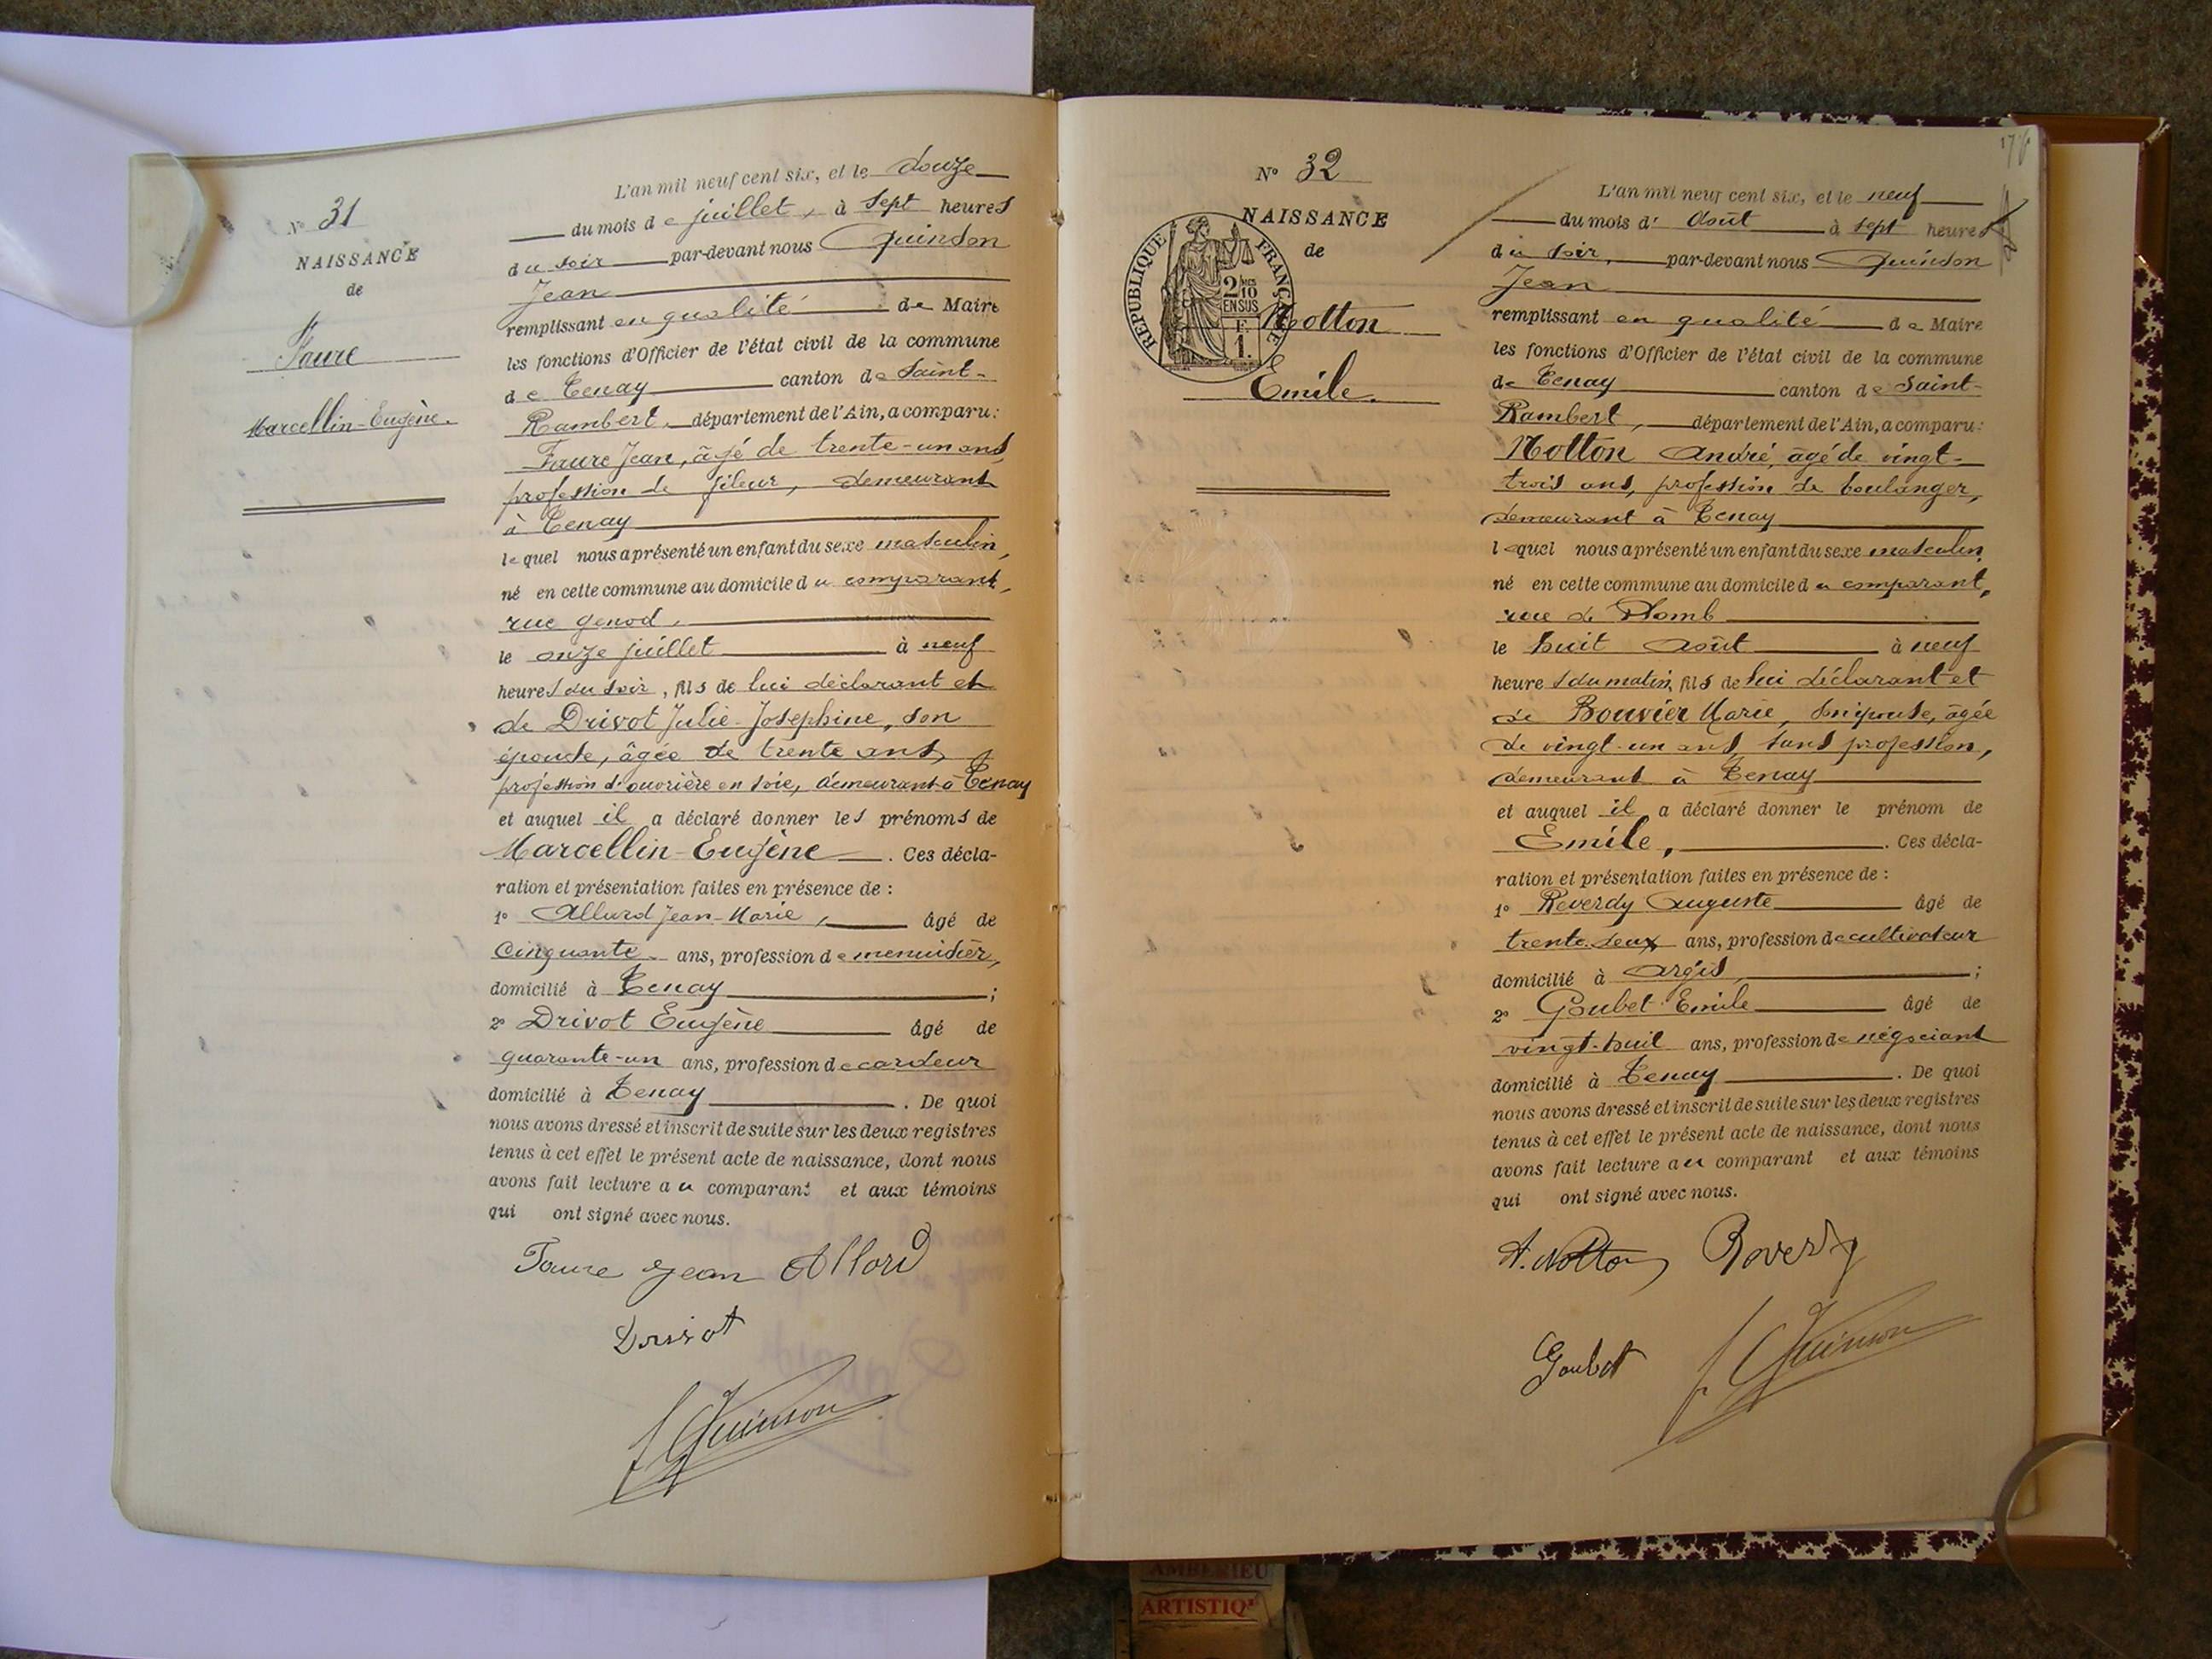 N° 31
NAISSANCE
de
Faure
Marcellin-Eugène.
L'an mil neuf cent six, et le douze
du mois de juillet, à sept heures
du soir par-devant nous Quinson
Jean
remplissant en qualité de Maire
les fonctions d'Officier de l'état civil de la commune
de Tenay canton de Saint-
Rambert, département de l'Ain, a comparu:
Faure Jean, âgé de trente-un ans,
profession de fileur, demeurant
à Tenay
lequel nous a présenté un enfant du sexe masculin,
né en cette commune au domicile du comparant,
rue Genod,
le onze juillet à neuf
heures du soir, fils de lui déclarant et
de Drivot Julie-Josephine, son
épouse, âgée de trente ans,
profession d'ouvrière en soie, demeurant à Tenay
et auquel il a déclaré donner les prénoms de
Marcellin-Eugène. Ces décla-
ration et présentation faites en présence de :
1° Allard Jean-Marie, âgé de
cinquante ans, profession de menuisier,
domicilié à Tenay ;
2° Drivot Eugène âgé de
quarante-un ans, profession de cardeur
domicilié à Tenay. De quoi
nous avons dressé et inscrit de suite sur les deux registres
tenus à cet effet le présent acte de naissance, dont nous
avons fait lecture au comparant et aux témoins
qui ont signé avec nous.
Faure Jean Allard
Drivot
J Quinson
176
N° 32
NAISSANCE
de
RÉPUBLIQUE FRANÇAISE
2/10 EN SUS
F. 1.
Notton
Emile.
L'an mil neuf cent six, et le neuf
du mois d'Août à sept heures
du soir, par-devant nous Quinson
Jean
remplissant en qualité de Maire
les fonctions d'Officier de l'état civil de la commune
de Tenay canton de Saint-
Rambert, département de l'Ain, a comparu:
Notton André, âgé de vingt-
trois ans, profession de boulanger,
demeurant à Tenay
lequel nous a présenté un enfant du sexe masculin,
né en cette commune au domicile du comparant,
rue de Plomb
le huit Août à neuf
heures du matin, fils de lui déclarant et
de Bouvier Marie, son épouse, âgée
de vingt-un ans, sans profession,
demeurant à Tenay
et auquel il a déclaré donner le prénom de
Emile, . Ces décla-
ration et présentation faites en présence de :
1° Reverdy Auguste âgé de
trente-deux ans, profession de cultivateur
domicilié à Argis, ;
2° Goubet Emile âgé de
vingt-huit ans, profession de négociant
domicilié à Tenay. De quoi
nous avons dressé et inscrit de suite sur les deux registres
tenus à cet effet le présent acte de naissance, dont nous
avons fait lecture au comparant et aux témoins
qui ont signé avec nous.
A. Notton Reverdy
Goubet J Quinson
AMBERIEU
ARTISTIQ